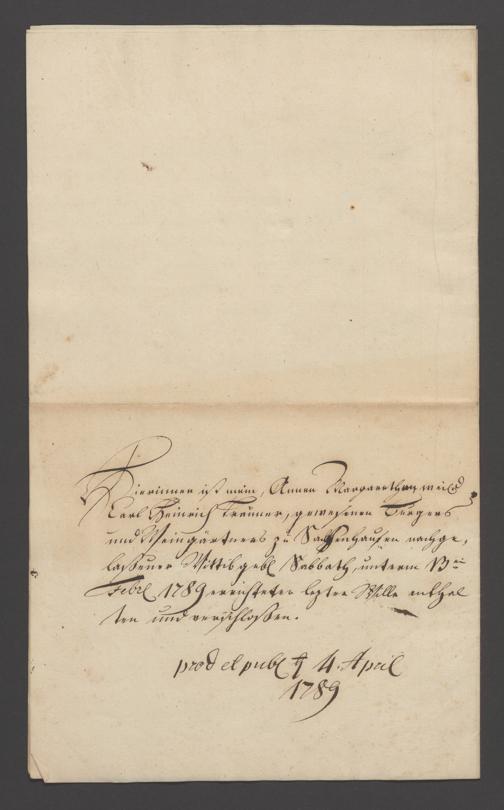 Hierinnen ist mein, Annen Margarethen weild
Carl Heinrich gewesenen Bergers
und Weingärtners zu Sachsenhausen nachge,
laßener Wittib gebl Sabbath, unterm 13ten
Febrl 1789 errichteter lezter Wille enthal
ten und verschloßen.
prod et publ 4. April
1789